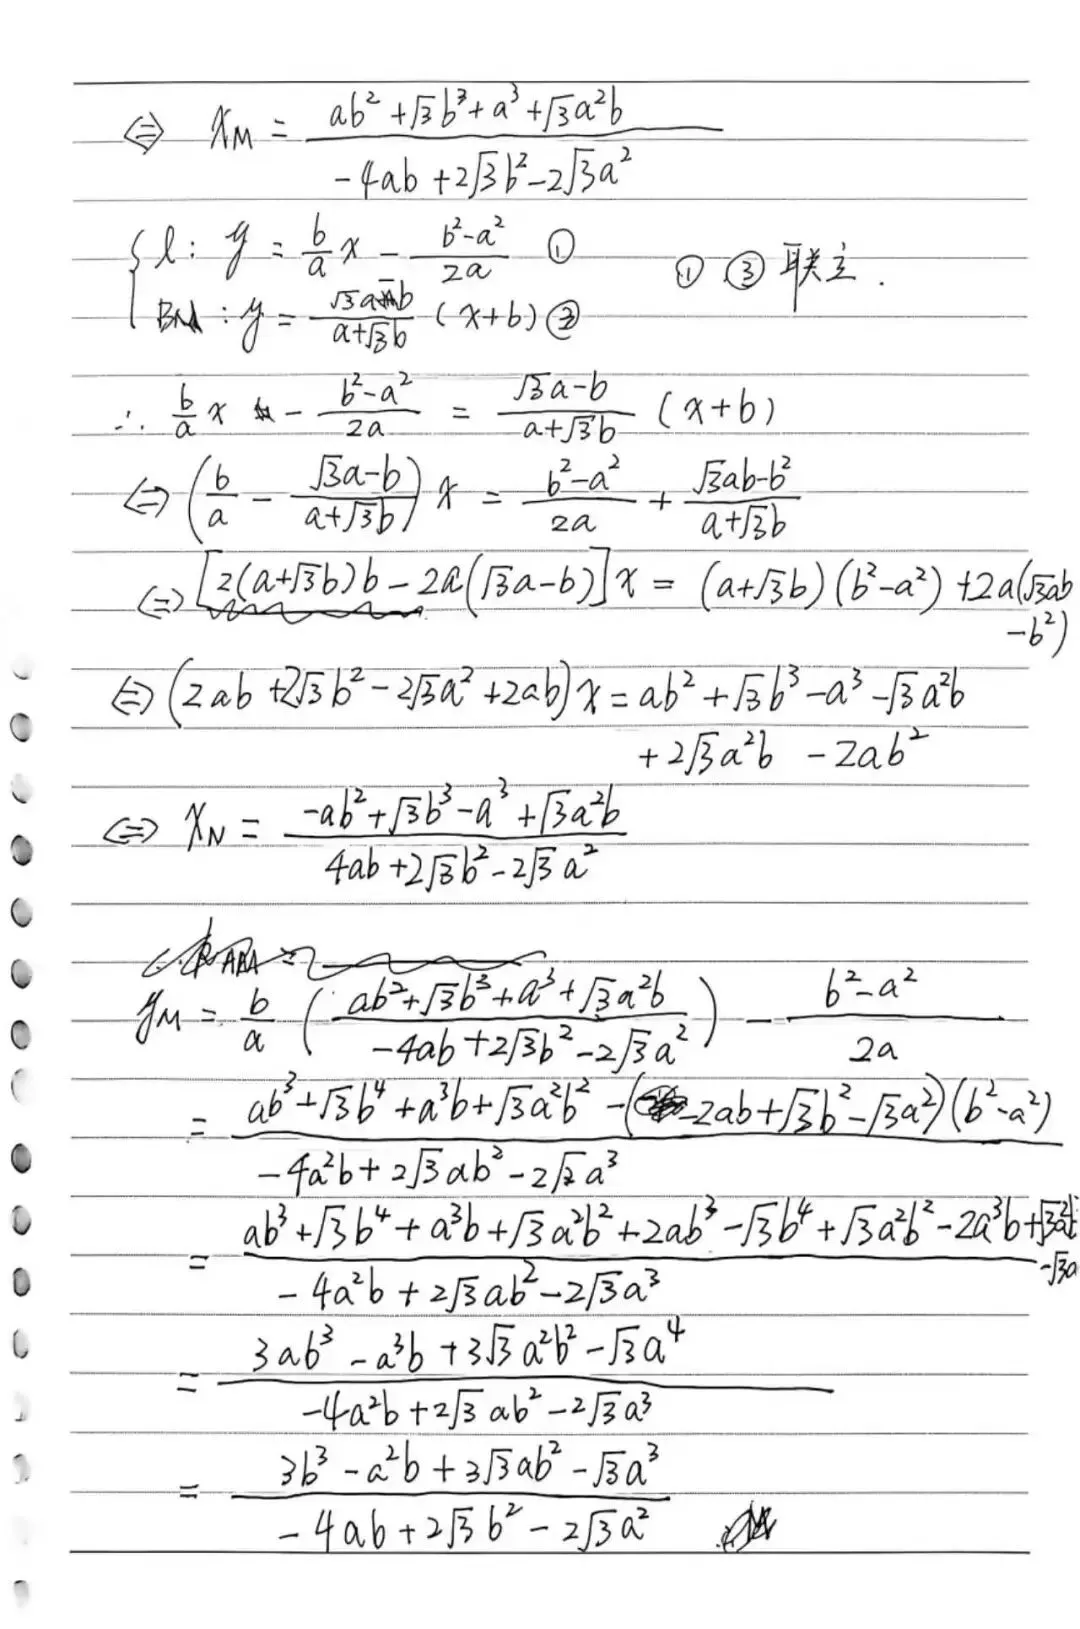 ⇔ x_M = (ab²+√3b³+a³+√3a²b)/(-4ab+2√3b²-2√3a²)
{ l: y = (b/a)x - (b²-a²)/(2a) ①
BN: y = (√3a-b)/(a+√3b) (x+b) ③
① ③ 联立.
∴ (b/a)x - (b²-a²)/(2a) = (√3a-b)/(a+√3b) (x+b)
⇔ (b/a - (√3a-b)/(a+√3b)) x = (b²-a²)/(2a) + (√3ab-b²)/(a+√3b)
⇔ [2(a+√3b)b - 2a(√3a-b)] x = (a+√3b)(b²-a²) + 2a(√3ab
-b²)
⇔ (2ab+2√3b²-2√3a²+2ab) x = ab²+√3b³-a³-√3a²b
+2√3a²b -2ab²
⇔ x_N = (-ab²+√3b³-a³+√3a²b)/(4ab+2√3b²-2√3a²)
y_M = (b/a) ((ab²+√3b³+a³+√3a²b)/(-4ab+2√3b²-2√3a²)) - (b²-a²)/(2a)
= (ab³+√3b⁴+a³b+√3a²b² -(-2ab+√3b²-√3a²)(b²-a²))/(-4a²b+2√3ab²-2√2a³)
= (ab³+√3b⁴+a³b+√3a²b²+2ab³-√3b⁴+√3a²b²-2a³b+√3a²b²
-√3a)/(-4a²b+2√3ab²-2√3a³)
= (3ab³-a³b+3√3a²b²-√3a⁴)/(-4a²b+2√3ab²-2√3a³)
= (3b³-a²b+3√3ab²-√3a³)/(-4ab+2√3b²-2√3a²)